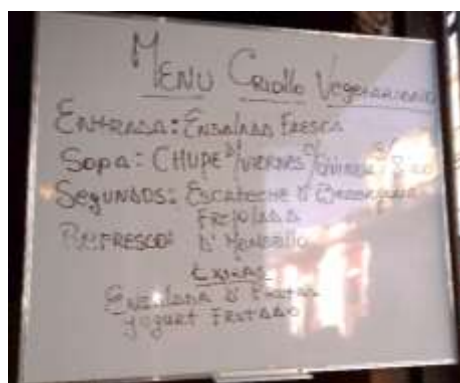 MENU CRIOLLO VEGETARIANO
ENTRADA: ENSALADA FRESCA
SOPA: CHUPE D/VIERNES
SEGUNDOS: ESCABECHE D'
FREJOLADA
REFRESCO: D' MEMBRILLO
EXTRAS
ENSALADA D' FRUTAS
YOGURT FRUTADO